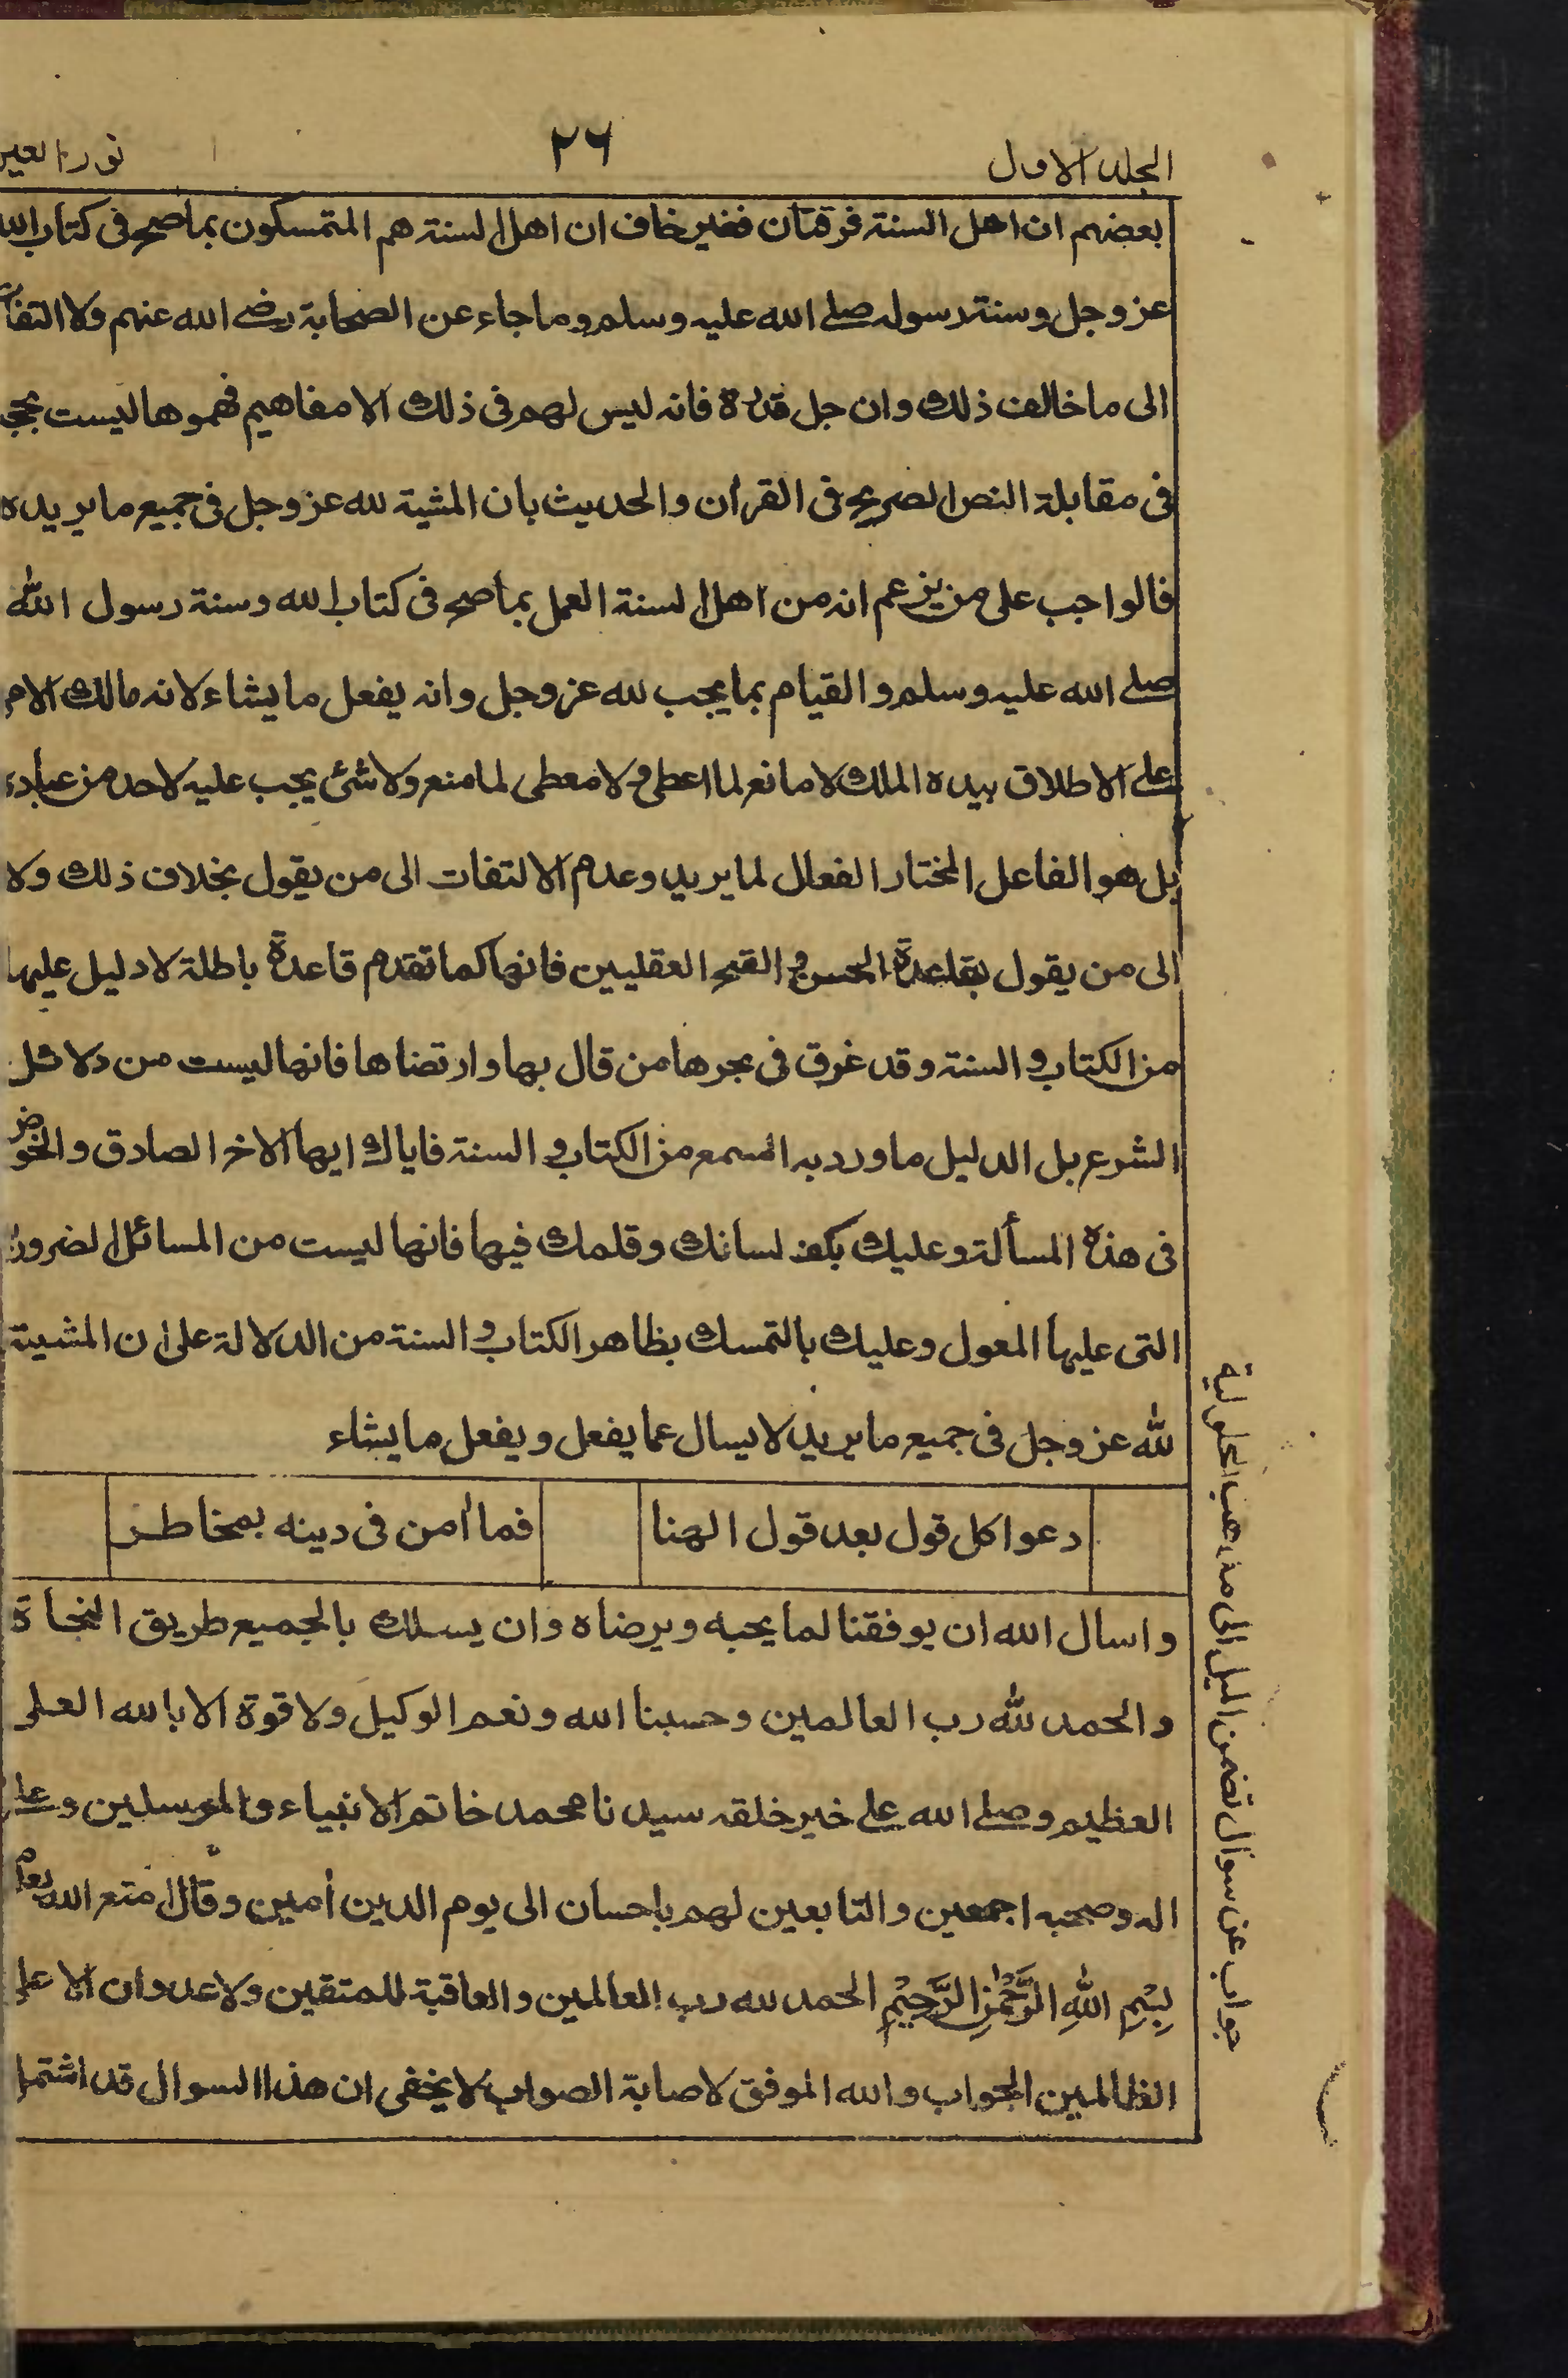 المجلد الاول
٢٦
نور العين
بعضهم ان اهل السنة فرقتان فغير خاف ان اهل السنة هم المتمسكون بما صح في كتاب الله
عز وجل وسنة رسوله صلے الله عليه وسلم وما جاء عن الصحابة رضے الله عنهم ولا التفات
الى ما خالف ذلك وان جل قدره فانه ليس لهم في ذلك الا مفاهيم فهموها ليست بحجج
في مقابلة النص الصريح في القرأن والحديث بان المشية لله عز وجل في جميع ما يريده
فالواجب على من يزعم انه من اهل السنة العمل بما صح في كتاب الله وسنة رسول الله
صلے الله عليه وسلم والقيام بما يجب لله عز وجل وانه يفعل ما يشاء لانه مالك الامر
علے الاطلاق بيده الملك لا مانع لما اعطى ولا معطى لما منع ولا شئ يجب عليه لاحد من عباده
بل هو الفاعل المختار الفعال لما يريد وعدم الالتفات الى من يقول بخلاف ذلك ولا
الى من يقول بقاعدة الحسن والقبح العقليين فانها كما تقدم قاعدة باطلة لا دليل عليها
من الكتاب والسنة وقد غرق في بحرها من قال بها وارتضاها فانها ليست من دلائل
الشرع بل الدليل ما ورد به السمع من الكتاب والسنة فاياك ايها الاخ الصادق والخوض
في هذه المسألة وعليك بكف لسانك وقلمك فيها فانها ليست من المسائل الضرورية
التى عليها المعول وعليك بالتمسك بظاهر الكتاب والسنة من الدلالة على ان المشية
لله عز وجل في جميع ما يريد لا يسال عما يفعل ويفعل ما يشاء
دعوا كل قول بعد قول الهنا فما أمن في دينه بمخاطر
واسال الله ان يوفقنا لما يحبه ويرضاه وان يسلك بالجميع طريق النجاة
والحمد لله رب العالمين وحسبنا الله ونعم الوكيل ولا قوة الا بالله العلى
العظيم وصلے الله علے خير خلقه سيدنا محمد خاتم الانبياء والمرسلين وعلے
اله وصحبه اجمعين والتابعين لهم باحسان الى يوم الدين أمين وقال متع الله به
بِسْمِ اللهِ الرَّحْمٰنِ الرَّحِيْمِ الحمد لله رب العالمين والعاقبة للمتقين ولا عدوان الا على
الظالمين الجواب والله الموفق لاصابة الصواب لا يخفى ان هذا السوال قد اشتمل
جواب عن سوال تضمن الميل الى مذهب الحلولية